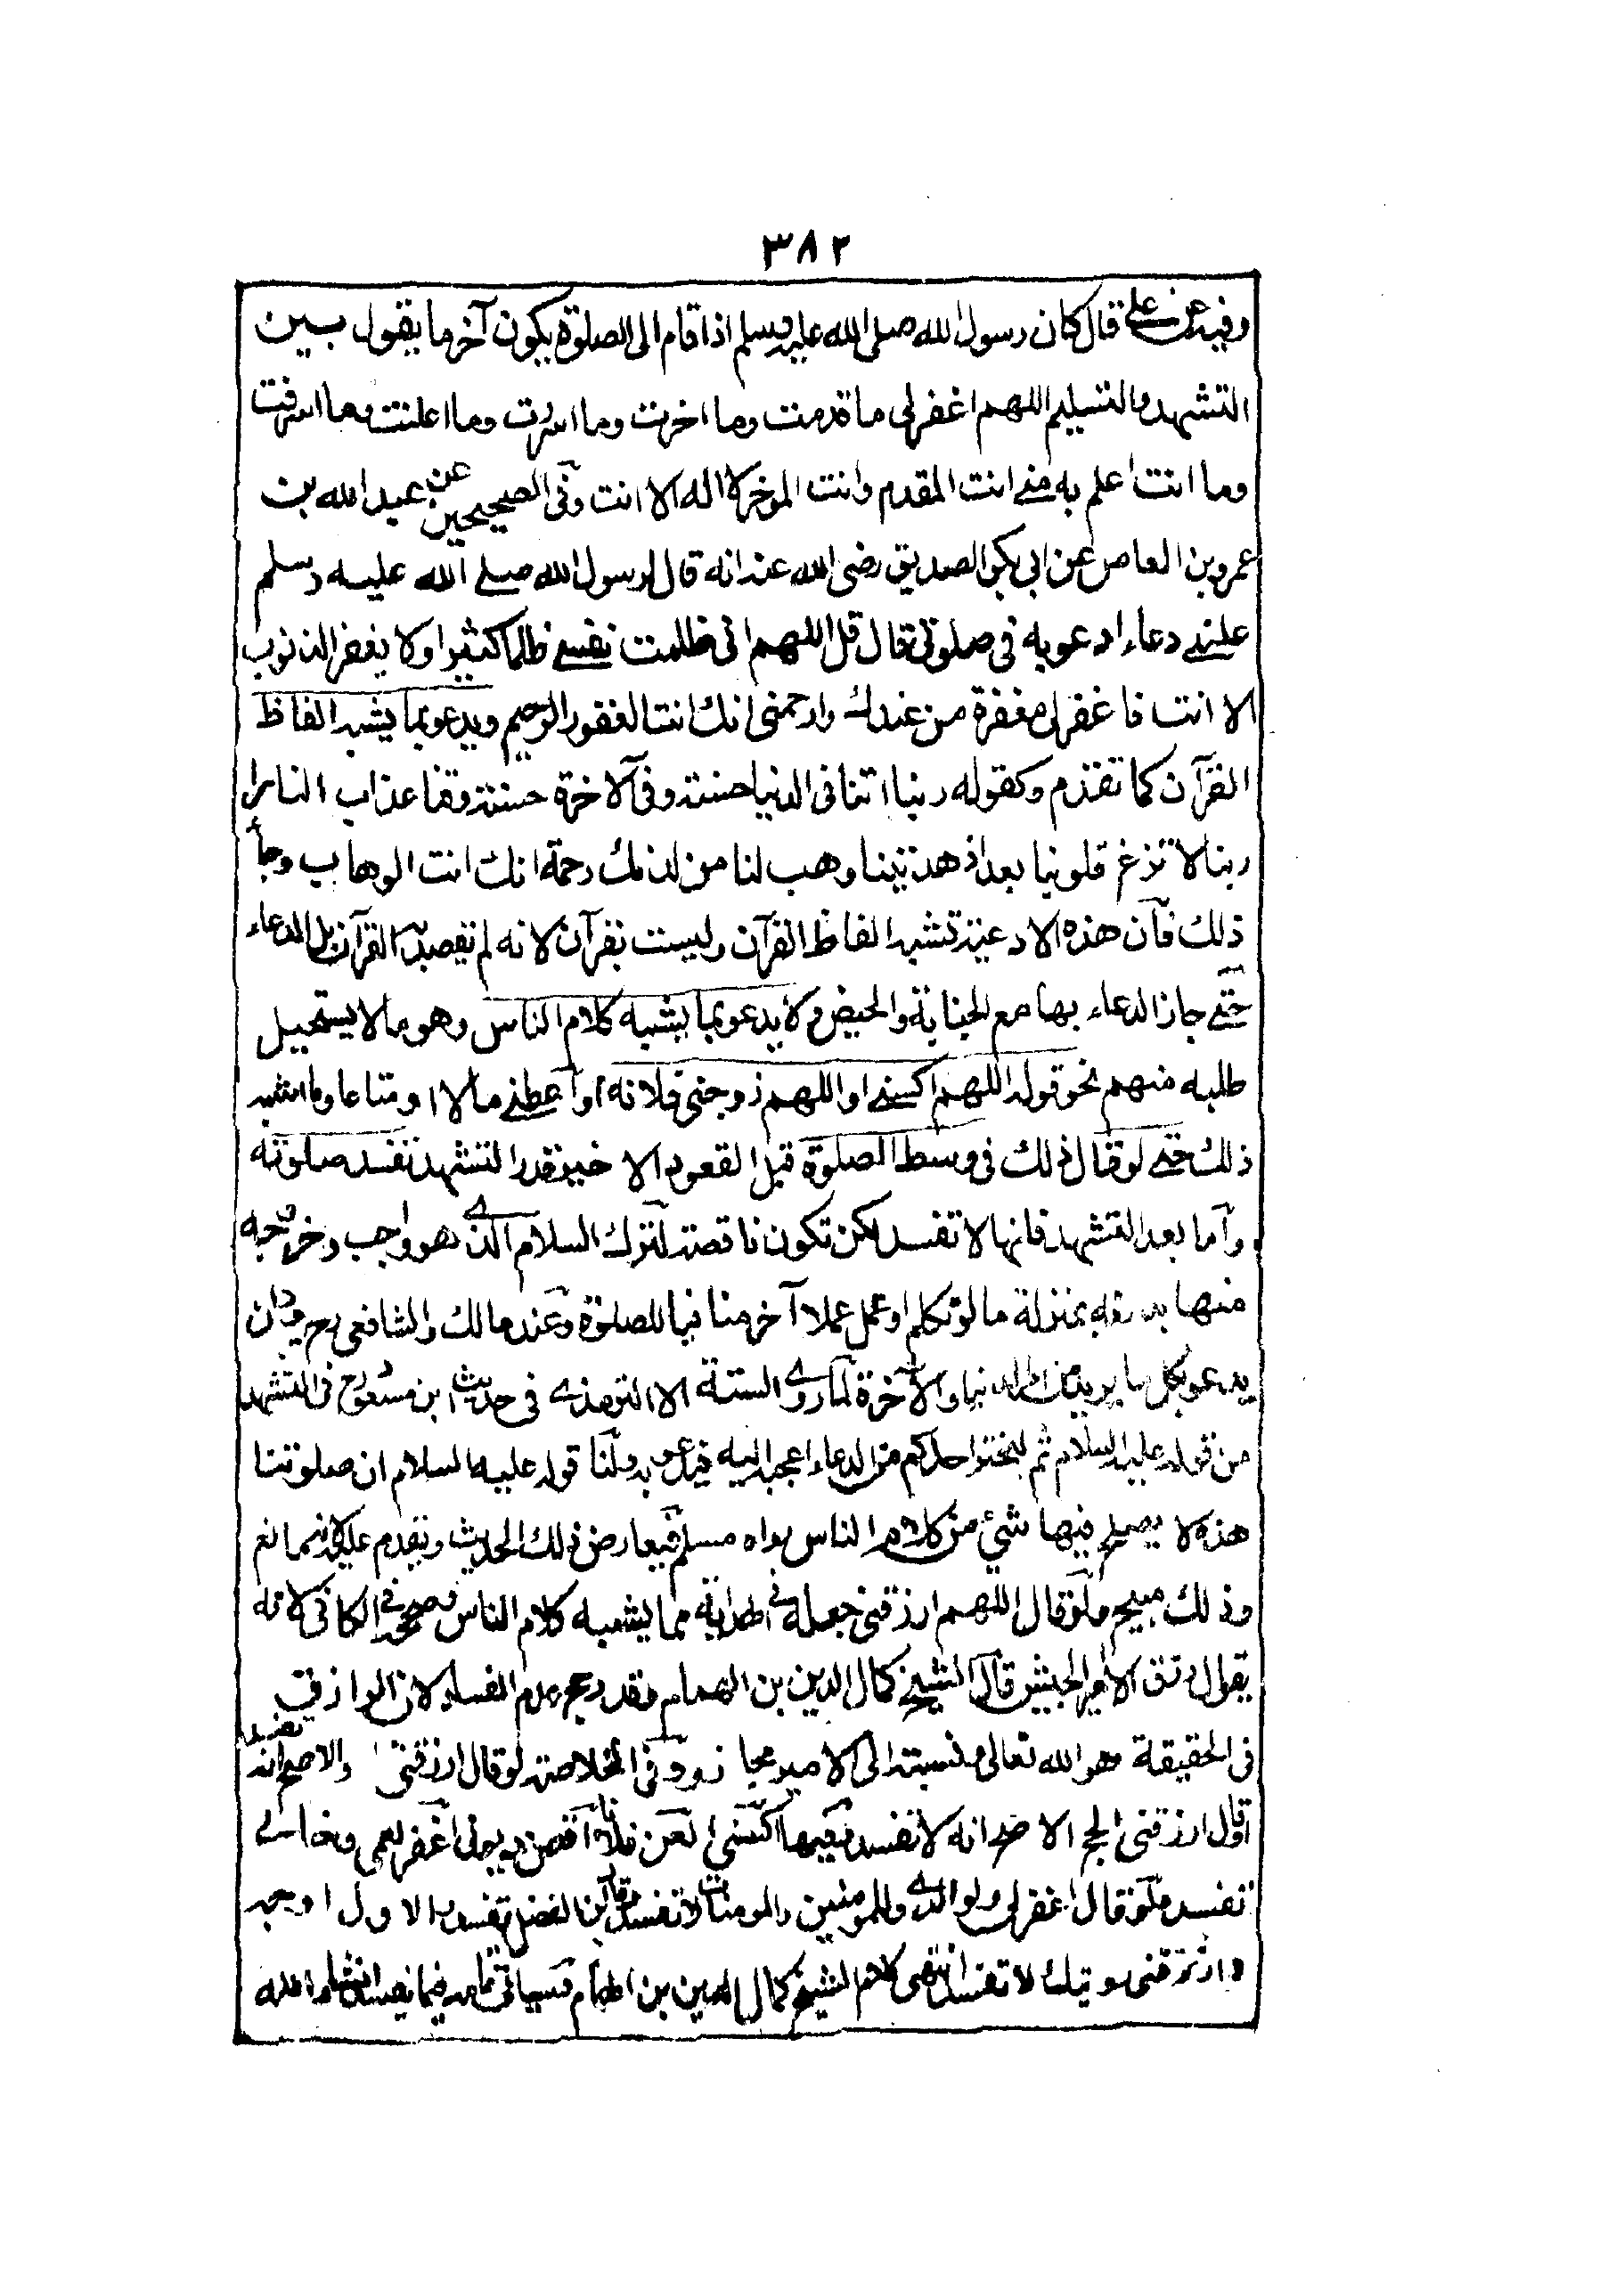 ٣٨٢
وفيه عن علي قال كان رسول الله صلى الله عليه وسلم اذا قام الى الصلوة يكون آخر ما يقول بين
التشهد والتسليم اللهم اغفر لى ما قدمت وما اخرت وما اسررت وما اعلنت وما اسرفت
وما انت اعلم به منى انت المقدم وانت الموخر لا اله الا انت وفى الصحيحين عن عبد الله بن
عمرو بن العاص عن ابى بكر الصديق رضى الله عنه انه قال لرسول الله صلے الله عليه وسلم
علمنے دعاء ادعو به فى صلوتى فقال قل اللهم انى ظلمت نفسے ظلما كثيرا ولا يغفر الذنوب
الا انت فاغفر لى مغفرة من عندك وارحمنى انك انت الغفور الرحيم ويدعو بما يشبه الفاظ
القرآن كما تقدم وكقوله ربنا اتنا فى الدنيا حسنة وفى الآخرة حسنة وقنا عذاب النار
ربنا لا تزغ قلوبنا بعد اذ هديتنا وهب لنا من لدنك رحمة انك انت الوهاب وما
ذلك فان هذه الادعية تشبه الفاظ القرآن وليست بقرآن لانه لم يقصد بها القرآن بل الدعاء
حتے جاز الدعاء بها مع الجنابة والحيض ولا يدعو بما يشبه كلام الناس وهو ما لا يستحيل
طلبه منهم نحو قوله اللهم اكسنے او اللهم زوجنى فلانة او اعطنے مالا او متاعا وما اشبه
ذلك حتے لو قال ذلك فى وسط الصلوة قبل القعود الاخير قدر التشهد تفسد صلوته
واما بعد التشهد فانها لا تفسد لكن تكون ناقصة لترك السلام الذے هو واجب وخروجه
منها بدونه بمنزلة ما لو تكلم او عمل عملا آخر منافيا للصلوة وعند مالك والشافعى رح يجوز ان
يدعو بكل ما يريد من الدنيا والآخرة لما روے الستة الا الترمذے فى حديث ابن مسعود رض فى التشهد
من قوله عليه السلام ثم ليختر احدكم من الدعاء اعجبه اليه فيدعو به ولنا قوله عليه السلام ان صلوتنا
هذه لا يصلح فيها شئ من كلام الناس رواه مسلم فيعارض ذلك الحديث ويقدم عليه لانه مانع
وذلك مبيح ولو قال اللهم ارزقنى جعله فى الهداية مما يشبه كلام الناس وصححه فى الكافى لانه
يقال رزق الامير الجيش قال الشيخ كمال الدين بن الهمام وقد رجح عدم الفساد لان الرازق
فى الحقيقة هو الله تعالى ونسبته الى الامير مجاز وفى الخلاصة لو قال ارزقنى تفسد والاصح انه
اوقال ارزقنى الحج الاصح انه لا تفسد وفيها اكسنى العن فلانا اقض ديونى اغفر لعمى وخالى
تفسد ولو قال اغفر لى ولوالدے وللمومنين والمومنات لا تفسد وقال ابن الفضل تفسد والاول اوجه
وارزقنى رويتك لا تفسد انتهى كلام الشيخ كمال الدين بن الهمام وسياتى تمامه فيما يفسد انشاء الله